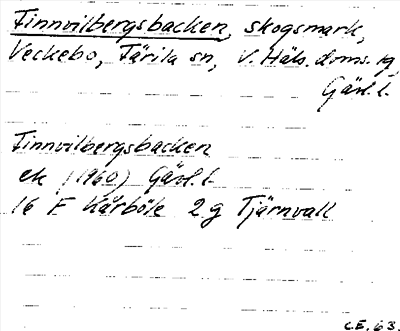 Finnvilbergsbacken, skogsmark,
Veckebo, Färila sn, V. Häls. doms. tg,
Gävl. l.
Finnvilbergsbacken
ek (1960) Gävl. l.
16 F Kårböle 2 g Tjärnvall
C.E. 63.